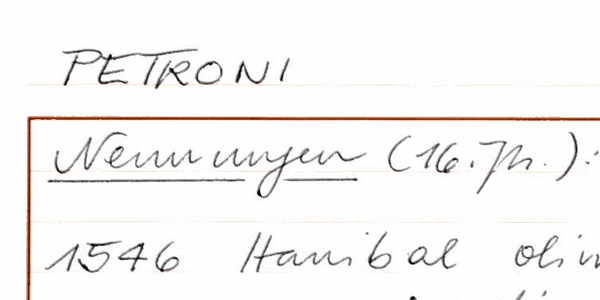 PETRONI
Nennungen (16. Jh.):
1546 Hanibal